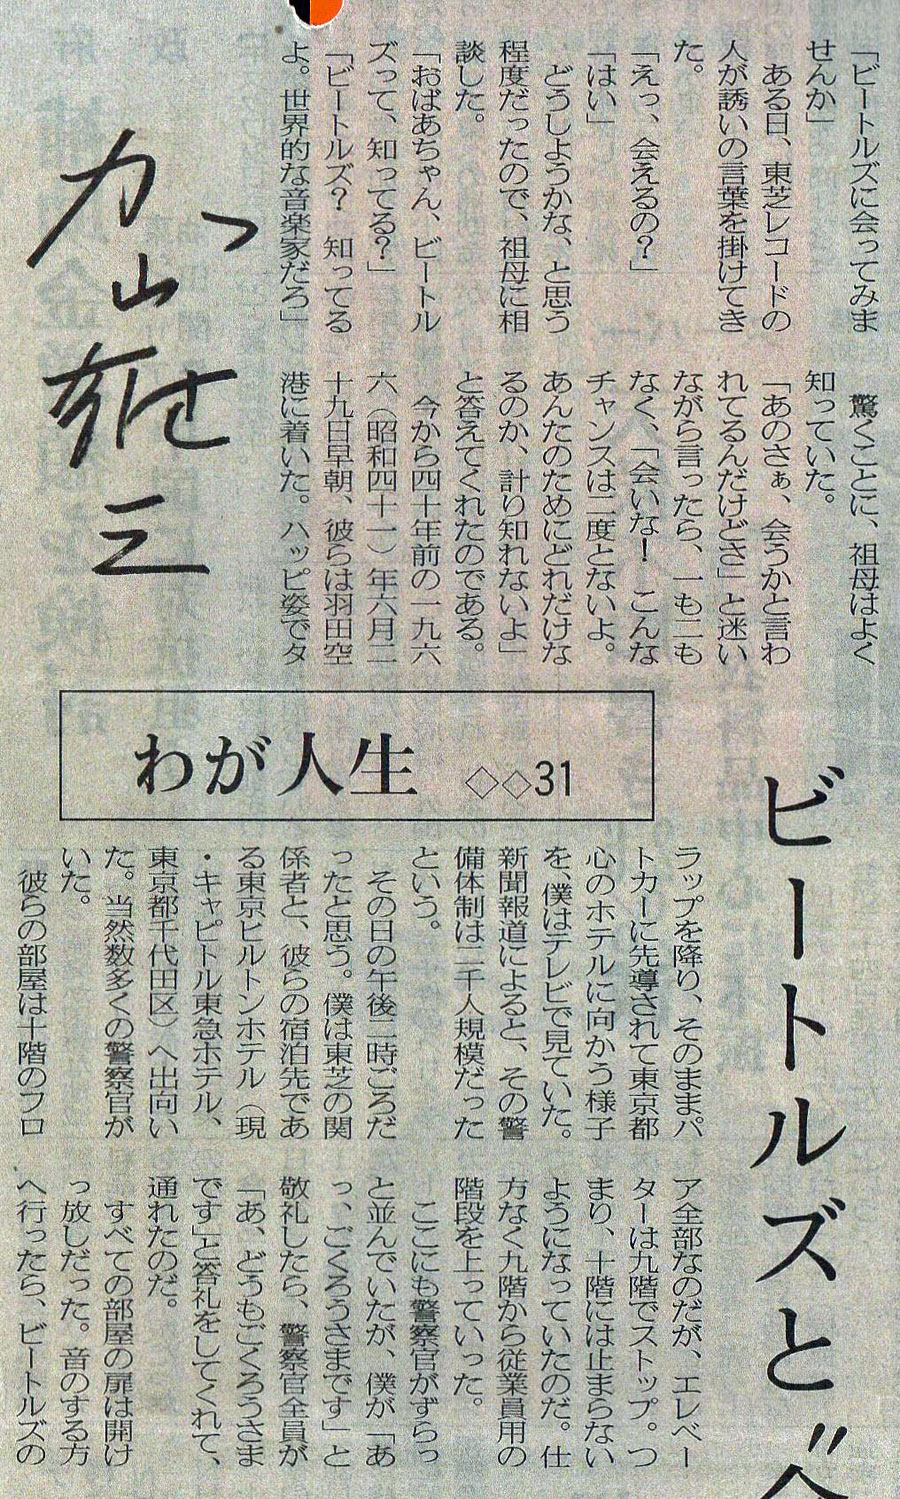 ビートルズと〝
「ビートルズに会ってみま
せんか」
ある日、東芝レコードの
人が誘いの言葉を掛けてき
た。
「えっ、会えるの？」
「はい」
どうしようかな、と思う
程度だったので、祖母に相
談した。
「おばあちゃん、ビートル
ズって、知ってる？」
「ビートルズ？　知ってる
よ。世界的な音楽家だろ」
驚くことに、祖母はよく
知っていた。
「あのさぁ、会うかと言わ
れてるんだけどさ」と迷い
ながら言ったら、一も二も
なく、「会いな！　こんな
チャンスは二度とないよ。
あんたのためにどれだけな
るのか、計り知れないよ」
と答えてくれたのである。
今から四十年前の一九六
六（昭和四十一）年六月二
十九日早朝、彼らは羽田空
港に着いた。ハッピ姿でタ
加山雄三
わが人生 ◇◇31
ラップを降り、そのままパ
トカーに先導されて東京都
心のホテルに向かう様子
を、僕はテレビで見ていた。
新聞報道によると、その警
備体制は二千人規模だった
という。
その日の午後二時ごろだ
ったと思う。僕は東芝の関
係者と、彼らの宿泊先であ
る東京ヒルトンホテル（現
・キャピトル東急ホテル、
東京都千代田区）へ出向い
た。当然数多くの警察官が
いた。
彼らの部屋は十階のフロ
ア全部なのだが、エレベー
ターは九階でストップ。つ
まり、十階には止まらない
ようになっていたのだ。仕
方なく九階から従業員用の
階段を上っていった。
ここにも警察官がずらっ
と並んでいたが、僕が「あ
っ、ごくろうさまです」と
敬礼したら、警察官全員が
「あ、どうもごくろうさま
です」と答礼をしてくれて、
通れたのだ。
すべての部屋の扉は開け
っ放しだった。音のする方
へ行ったら、ビートルズの